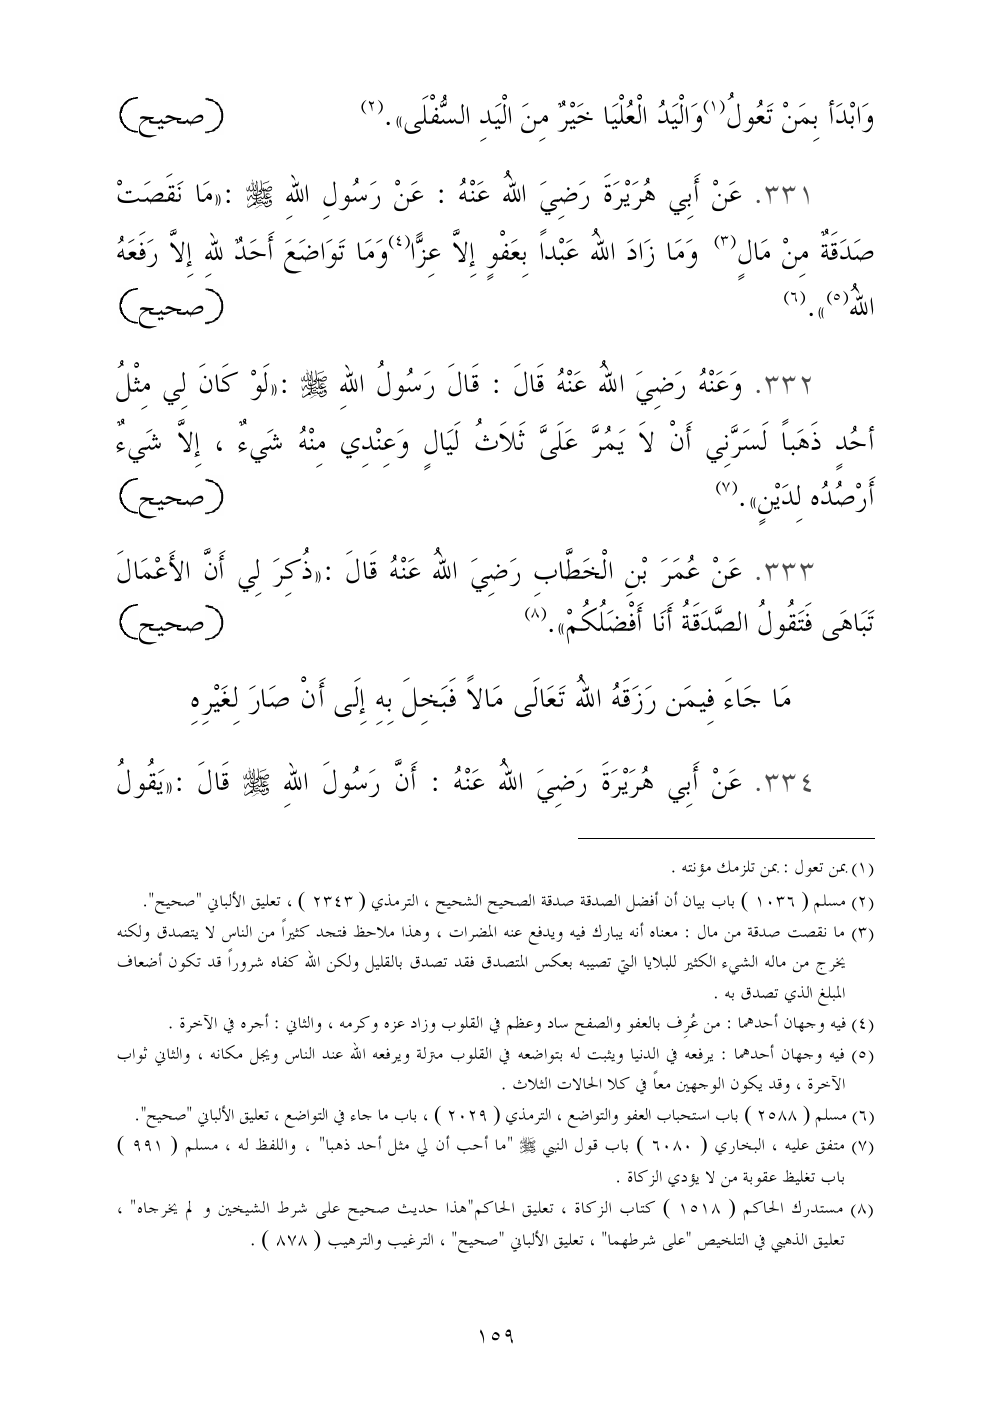 وَابْدَأ بِمَنْ تَعُولُ(١)وَالْيَدُ الْعُلْيَا خَيْرٌ مِنَ الْيَدِ السُّفْلَى».(٢) (صحيح)
٣٣١. عَنْ أَبِي هُرَيْرَةَ رَضِيَ اللهُ عَنْهُ : عَنْ رَسُولِ اللهِ ﷺ :«مَا نَقَصَتْ
صَدَقَةٌ مِنْ مَالٍ(٣) وَمَا زَادَ اللهُ عَبْداً بِعَفْوٍ إِلاَّ عِزًّا(٤)وَمَا تَوَاضَعَ أَحَدٌ للهِ إِلاَّ رَفَعَهُ
اللهُ(٥)».(٦) (صحيح)
٣٣٢. وَعَنْهُ رَضِيَ اللهُ عَنْهُ قَالَ : قَالَ رَسُولُ اللهِ ﷺ :«لَوْ كَانَ لِي مِثْلُ
أحُدٍ ذَهَباً لَسَرَّنِي أَنْ لاَ يَمُرَّ عَلَىَّ ثَلاَثُ لَيَالٍ وَعِنْدِي مِنْهُ شَيءٌ ، إِلاَّ شَيءٌ
أَرْصُدُه لِدَيْنٍ».(٧) (صحيح)
٣٣٣. عَنْ عُمَرَ بْنِ الْخَطَّابِ رَضِيَ اللهُ عَنْهُ قَالَ :«ذُكِرَ لِي أَنَّ الأَعْمَالَ
تَبَاهَى فَتَقُولُ الصَّدَقَةُ أَنَا أَفْضَلُكُمْ».(٨) (صحيح)
مَا جَاءَ فِيمَن رَزَقَهُ اللهُ تَعَالَى مَالاً فَبَخِلَ بِهِ إِلَى أَنْ صَارَ لِغَيْرِهِ
٣٣٤. عَنْ أَبِي هُرَيْرَةَ رَضِيَ اللهُ عَنْهُ : أَنَّ رَسُولَ اللهِ ﷺ قَالَ :«يَقُولُ
(١) بمن تعول : بمن تلزمك مؤنته .
(٢) مسلم ( ١٠٣٦ ) باب بيان أن أفضل الصدقة صدقة الصحيح الشحيح ، الترمذي ( ٢٣٤٣ ) ، تعليق الألباني "صحيح".
(٣) ما نقصت صدقة من مال : معناه أنه يبارك فيه ويدفع عنه المضرات ، وهذا ملاحظ فتجد كثيراً من الناس لا يتصدق ولكنه
يخرج من ماله الشيء الكثير للبلايا التي تصيبه بعكس المتصدق فقد تصدق بالقليل ولكن الله كفاه شروراً قد تكون أضعاف
المبلغ الذي تصدق به .
(٤) فيه وجهان أحدهما : من عُرِف بالعفو والصفح ساد وعظم في القلوب وزاد عزه وكرمه ، والثاني : أجره في الآخرة .
(٥) فيه وجهان أحدهما : يرفعه في الدنيا ويثبت له بتواضعه في القلوب منزلة ويرفعه الله عند الناس ويجل مكانه ، والثاني ثواب
الآخرة ، وقد يكون الوجهين معاً في كلا الحالات الثلاث .
(٦) مسلم ( ٢٥٨٨ ) باب استحباب العفو والتواضع ، الترمذي ( ٢٠٢٩ ) ، باب ما جاء في التواضع ، تعليق الألباني "صحيح".
(٧) متفق عليه ، البخاري ( ٦٠٨٠ ) باب قول النبي ﷺ "ما أحب أن لي مثل أحد ذهبا" ، واللفظ له ، مسلم ( ٩٩١ )
باب تغليظ عقوبة من لا يؤدي الزكاة .
(٨) مستدرك الحاكم ( ١٥١٨ ) كتاب الزكاة ، تعليق الحاكم"هذا حديث صحيح على شرط الشيخين و لم يخرجاه" ،
تعليق الذهبي في التلخيص "على شرطهما" ، تعليق الألباني "صحيح" ، الترغيب والترهيب ( ٨٧٨ ) .
١٥٩